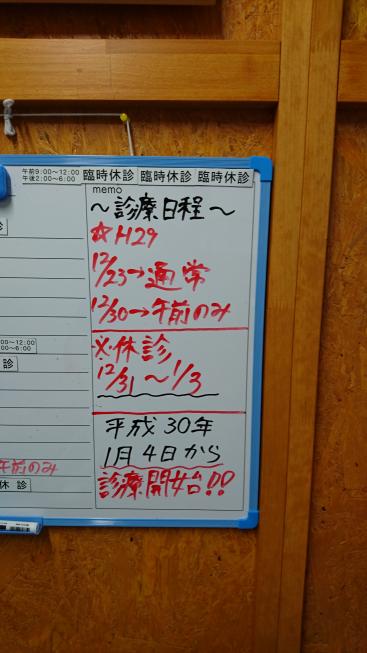 午前9:00~12:00
午後2:00~6:00
臨時休診 臨時休診 臨時休診
memo
~診療日程~
☆H29
12/23→通常
12/30→午前のみ
※休診
12/31~1/3
平成30年
1月4日から
診療開始!!
診
00~12:00
00~6:00
診
午前のみ
休診